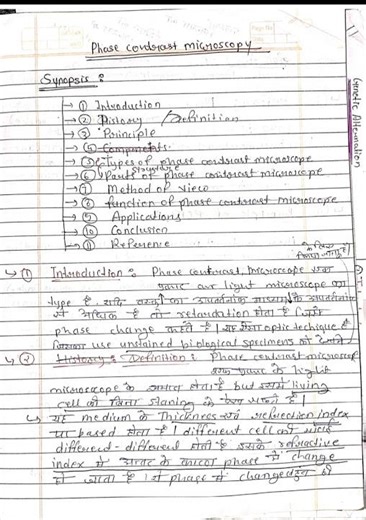 Phase contrast microscopy
Synopsis :
→ ① Introduction
→ ② History / Definition
→ ③ Principle
→ ④ Components
→ ⑤ Types of phase contrast microscope
→ ⑥ Parts of phase contrast microscope
structure
→ ⑦ Method of view
→ ⑧ function of phase contrast microscope
→ ⑨ Applications
→ ⑩ Conclusion
→ ⑪ Reference
Genetic Attenuation
① Introduction : Phase contrast microscope एक
प्रकार light microscope का
type है
से अधिक है तो retardation होता है जिसे
phase change कहते है | यह ऐसा optic technique है
जिसका use unstained biological specimens को देखने
② History : Definition : Phase contrast microscope
एक प्रकार के light
microscope के समान होता है but इसमें living
cell को बिना staining के देख सकते है |
यह medium के Thickness एवं refraction index
पर based होता है | different cell
different-different होती है इसके refractive
index में अन्तर के कारण phase में change
हो जाता है | ये phase में change